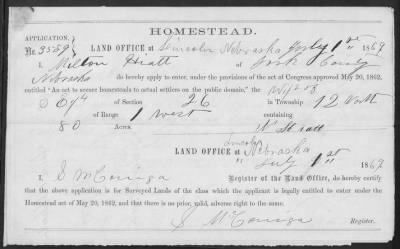 HOMESTEAD.
APPLICATION.
No. 3529
LAND OFFICE at Lincoln Nebraska July 1st 1869
I, Milton Hiatt of York County
Nebraska do hereby apply to enter, under the provisions of the act of Congress approved May 20, 1862,
entitled "An act to secure homesteads to actual settlers on the public domain," the W½ of
S E ¼ of Section 26 in Township 12 North
of Range 1 West containing
80 Acres.
Hiatt
Lincoln
LAND OFFICE at Nebraska
July 1st 1869
I, S McConiga Register of the Land Office, do hereby certify
that the above application is for Surveyed Lands of the class which the applicant is legally entitled to enter under the
Homestead act of May 20, 1862, and that there is no prior, valid, adverse right to the same.
S McConiga
Register.